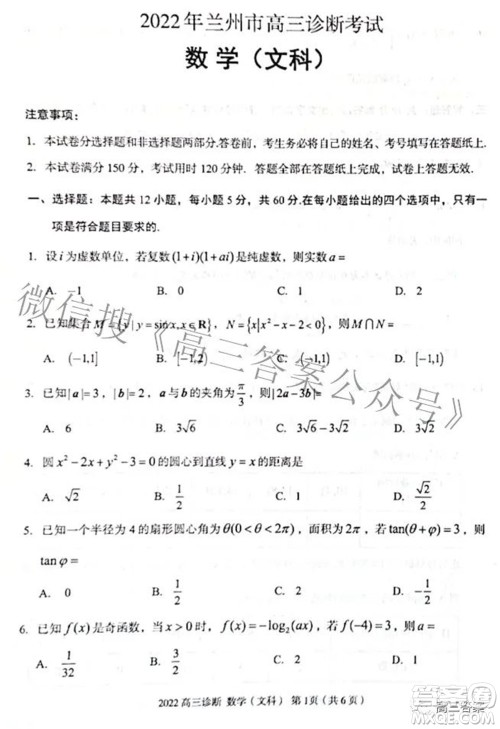 2022年兰州市高三诊断考试
数学（文科）
注意事项：
1. 本试卷分选择题和非选择题两部分.答卷前，考生务必将自己的姓名、考号填写在答题纸上.
2. 本试卷满分 150 分，考试用时 120 分钟. 答题全部在答题纸上完成，试卷上答题无效.
一、选择题：本题共 12 小题，每小题 5 分，共 60 分.在每小题给出的四个选项中，只有一
项是符合题目要求的.
1. 设 i 为虚数单位，若复数 (1+i)(1+ai) 是纯虚数，则实数 a=
A. −1 B. 0 C. 1 D. 2
2. 已知集合 M={y|y=sin x, x∈R}，N={x|x²−x−2<0}，则 M∩N=
A. (−1,1] B. (−1,1) C. [−1,2) D. [−1,1)
3. 已知 |a|=3，|b|=2，a 与 b 的夹角为 π/3，则 |2a−3b|=
A. 6 B. 3√6 C. 3√6−3√2 D. 3√2
4. 圆 x²−2x+y²−3=0 的圆心到直线 y=x 的距离是
A. √2 B. 1/2 C. 1 D. √2/2
5. 已知一个半径为 4 的扇形圆心角为 θ(0<θ<2π)，面积为 2π，若 tan(θ+φ)=3，则
tanφ=
A. 0 B. 1/2 C. 2 D. −1/2
6. 已知 f(x) 是奇函数，当 x>0 时，f(x)=−log₂(ax)，若 f(−4)=3，则 a=
A. 1/32 B. 3/2 C. 2 D. 1
2022 高三诊断 数学（文科） 第1页（共6页）
微信搜《高三答案公众号》
高三答案